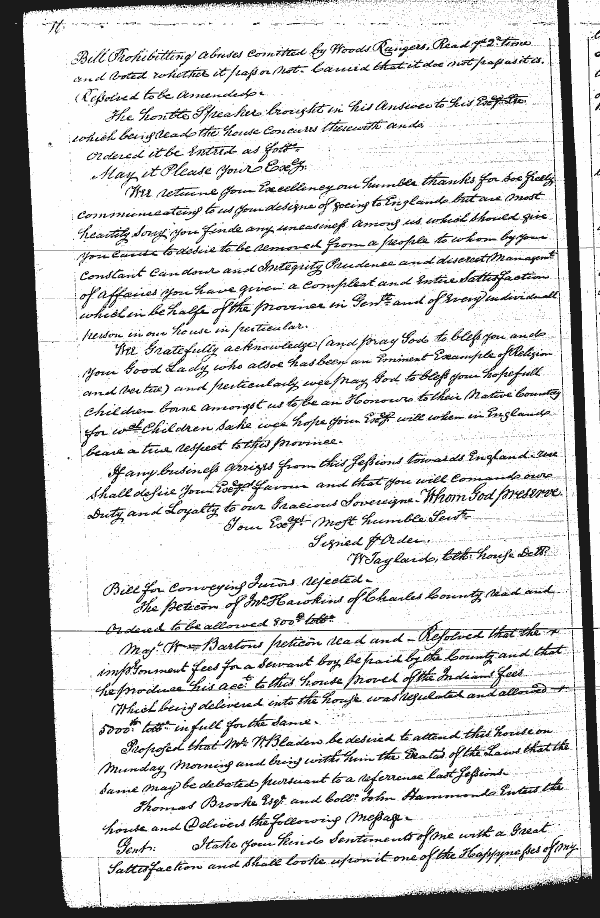 Bill Prohibitting Abuses comitted by Woods Rangers, Read ye 2d time
and voted whether it pass or not. Carried that it doe not pass as it is,
Resolved to be Amended.
The honble Speaker brought in his Answer to his Excy
which being read the house Concurrs therewith and
Ordered it be Entred as folls.
May it Please Your Excy.
Wee returne Your Excellency our humble thanks for soe freely
communicating to us your designe of going to England but are most
heartily sory you finde any uneasiness among us which should give
you Cause to desire to be removed from a people to whom by your
constant Candour and Integrity Prudence and discreet Managemt
of Affaires you have given a compleat and Entire Sattisfaction
which in behalfe of the Province in Genll and of Every individuall
person in our house in perticular.
Wee Gratefully acknowledge (and pray God to bless you and
your Good Lady who alsoe has been an Eminent Example of Religion
and vertue) and perticularly wee pray God to bless your hopefull
Children borne amongst us to be an Honour to their Native Country
for wch Children sake wee hope your Excy will when in England
beare a true respect to this Province.
If any business arrizes from this Sessions towards England wee
shall desire Your Excys favour and that you will Comand our
Duty and Loyalty to our Gracious Sovereigne Whom God preserve
Your Excys most humble Servts
Signed p Order.
W Taylard, Clk house Del.
Bill for conveying Jurors rejected.
The peticon of Jno Hawkins of Charles County read and
Ordered to be allowed 800d tobo.
Majr Wm Bartons peticon read and - Resolved that the
imprsonment fees for a servant boy be paid by the County and that
he produce his acct to this house proved of the Indians fees
Which being delivered into the house was regulated and allowed
5000lb tobo in full for the same.
Proposed that Mr W. Bladen be desired to attend this house on
Munday Morning and bring with him the of the Laws that the
same may be debated pursuant to a referrence last Sessions.
Thomas Brooke Esqr and Collo John Hammond Enters the
house and Delivers the following Message.
Gentn: I take your kinde Sentiments of me with a Great
Sattisfaction and shall looke upon it one of the Happynesses of my